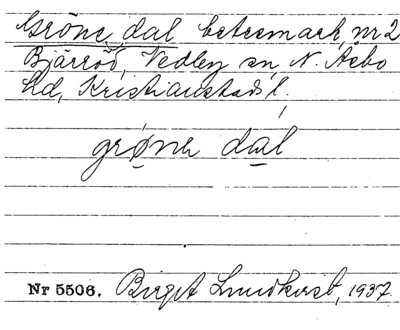 Gröne dal betesmark, nr 2
Bjärröd, Vedby sn, N. Åsbo
hd, Kristianstads l.
grøna dal
Nr 5506. Birgit Lundkvist, 1937.